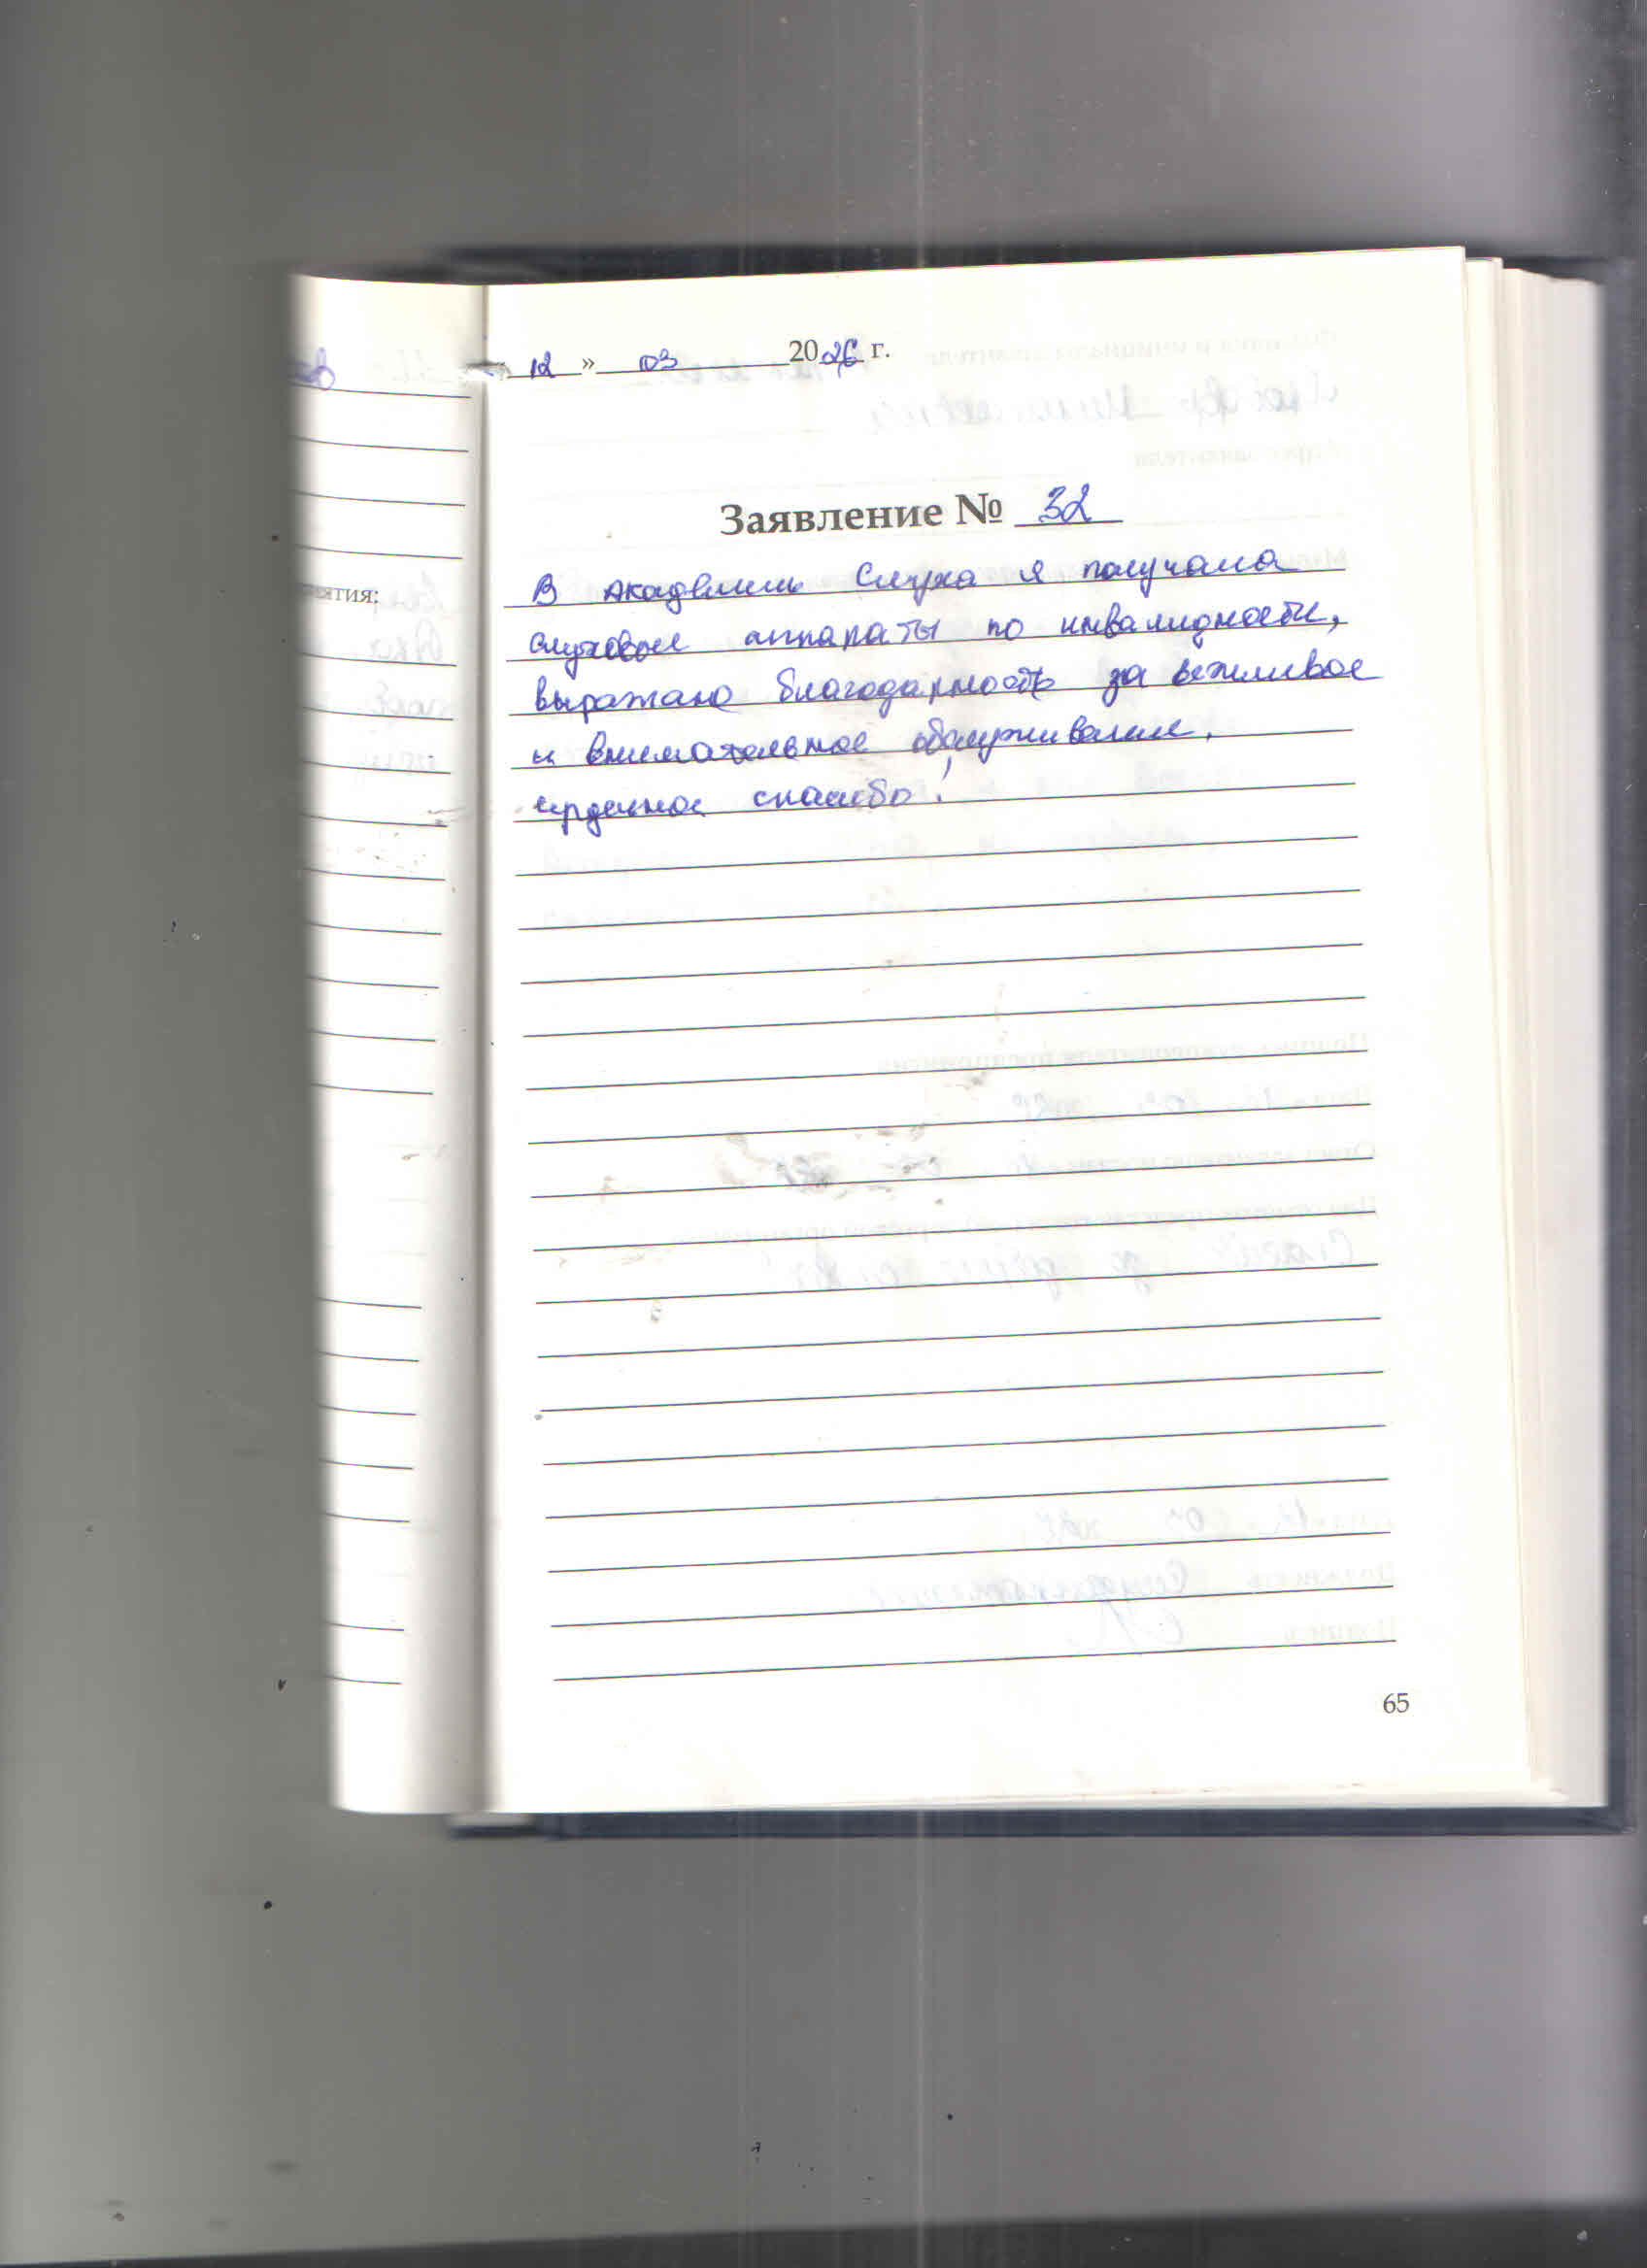 « 12 » 03 2026 г.
Заявление № 32
ятия:
В Академии Слуха я получала
слуховые аппараты по инвалидности,
выражаю благодарность за вежливое
и внимательное обслуживание,
сердечное спасибо!
65